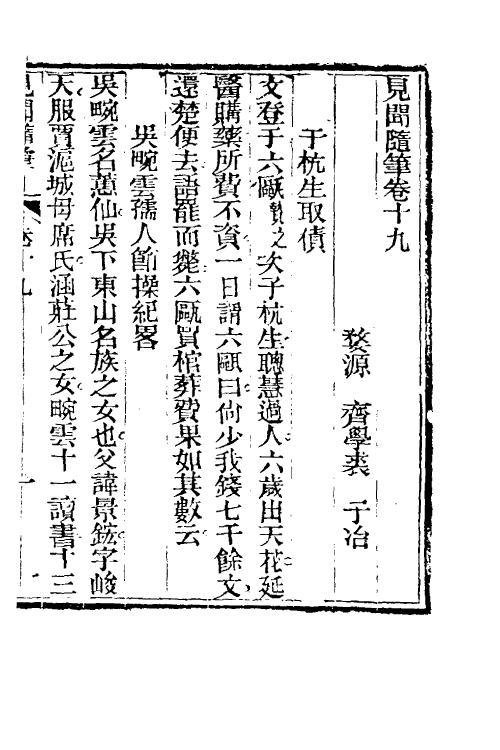 見聞隨筆卷十九
婺源　齊學裘　子冶
于杭生取債
文登于六甌贄之次子杭生聰慧過人六歲出天花延
醫購藥所費不資一日謂六甌曰尙少我錢七千餘文
還楚便去語罷而斃六甌買棺葬費果如其數云
吳畹雲孺人節操紀畧
吳畹雲名蕙仙吳下東山名族之女也父諱景鋐字峻
天服賈滬城母席氏涵莊公之女畹雲十一讀書十三
見聞隨筆　卷十九　一